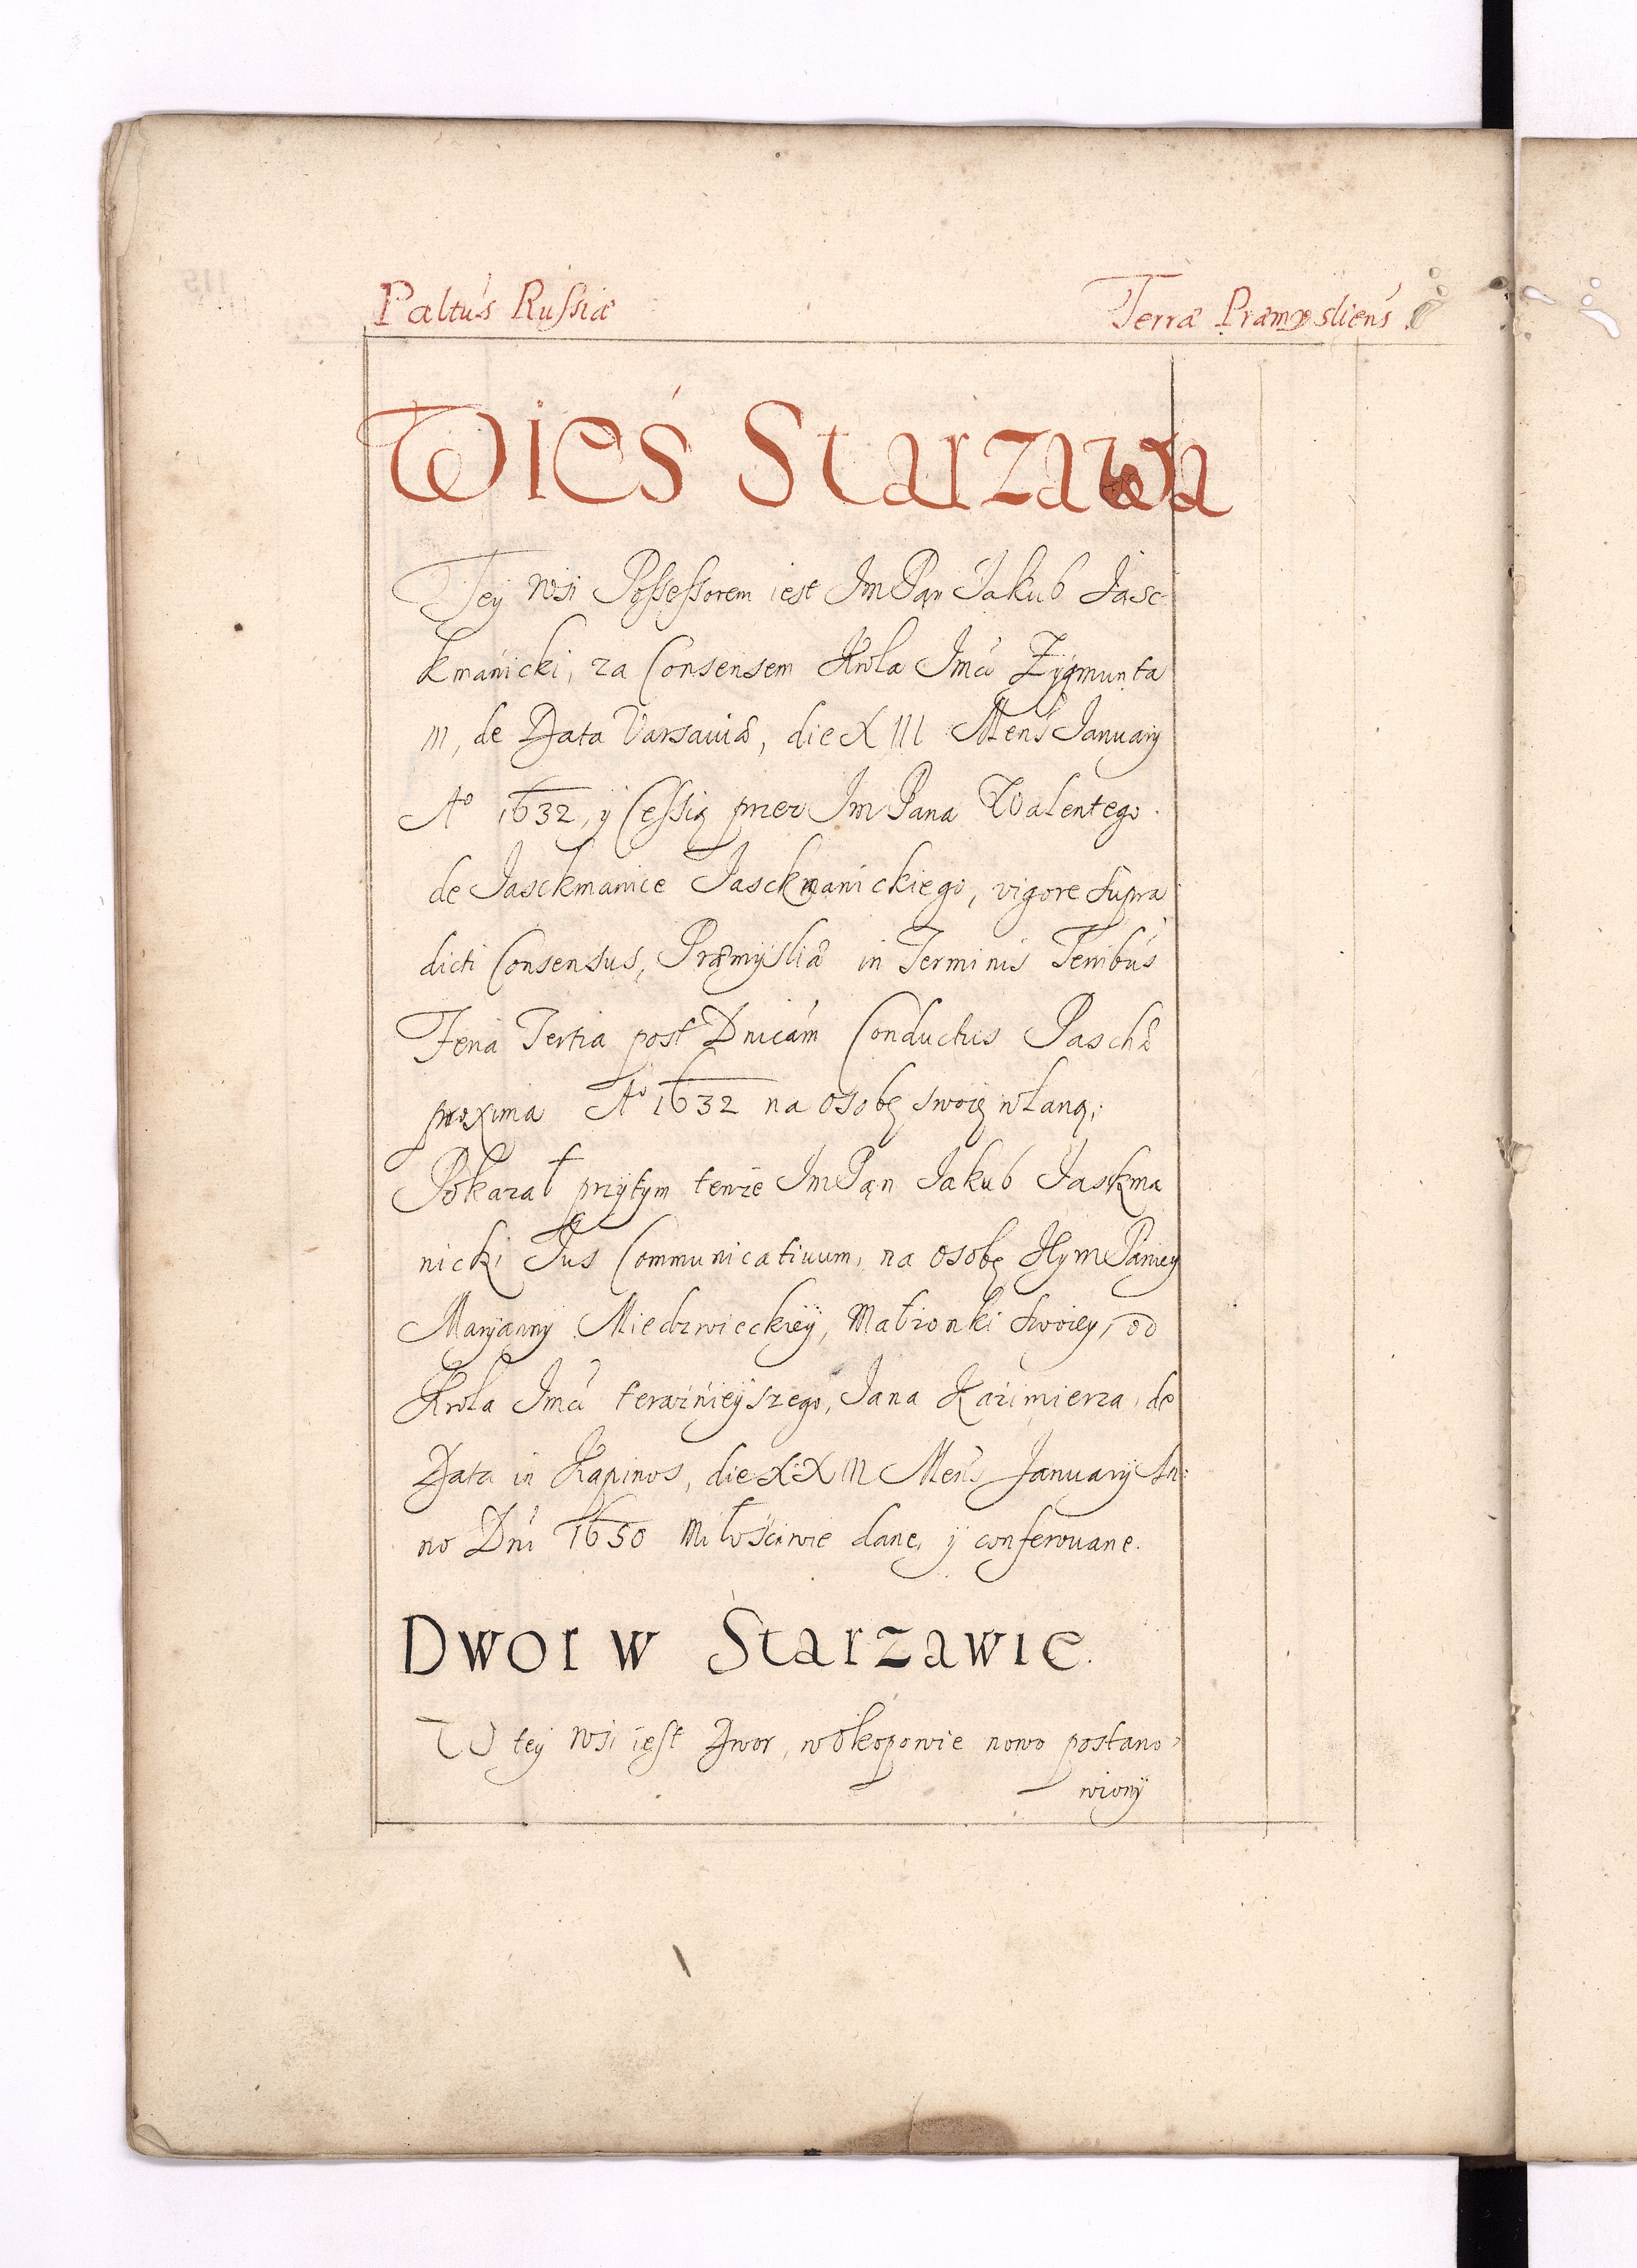 Paltus Russiæ
Terræ Præmysliens
Wieś Starzawa
Tey wsi Possessorem iest Im Pąn Jakub Jasc
kmanicki, za Consensem Krola Jmci Zygmunta
III, de Data Varsaviæ, die XIII Mens January
Aº 1632, y Cessią przez Im Pana Walentego
de Jasckmanice Jasckmanickiego, vigore supra
dicti Consensus, Præmysliæ in Terminis Terribus
Feria Tertia post Dnicam Conductus Paschæ
proxima Aº 1632 na osobę swoię własną;
Pokazał przytym tenże Im Pąn Jakub Jaskma
nicki Jus Communicativum, na osobę Jeym Paniey
Maryanny Miedzwieckiey, Małżonki swoiey, od
Krola Jmci teraźnieyszego, Jana Kaźimierza, de
Data in Kapinos, die XXIII Mens January An:
no Dni 1650 Miłośćiwie dane, y conferowane.
Dwor w Starzawie.
W tey wsi iest Dwor, w okopowie nowo postano
wiony